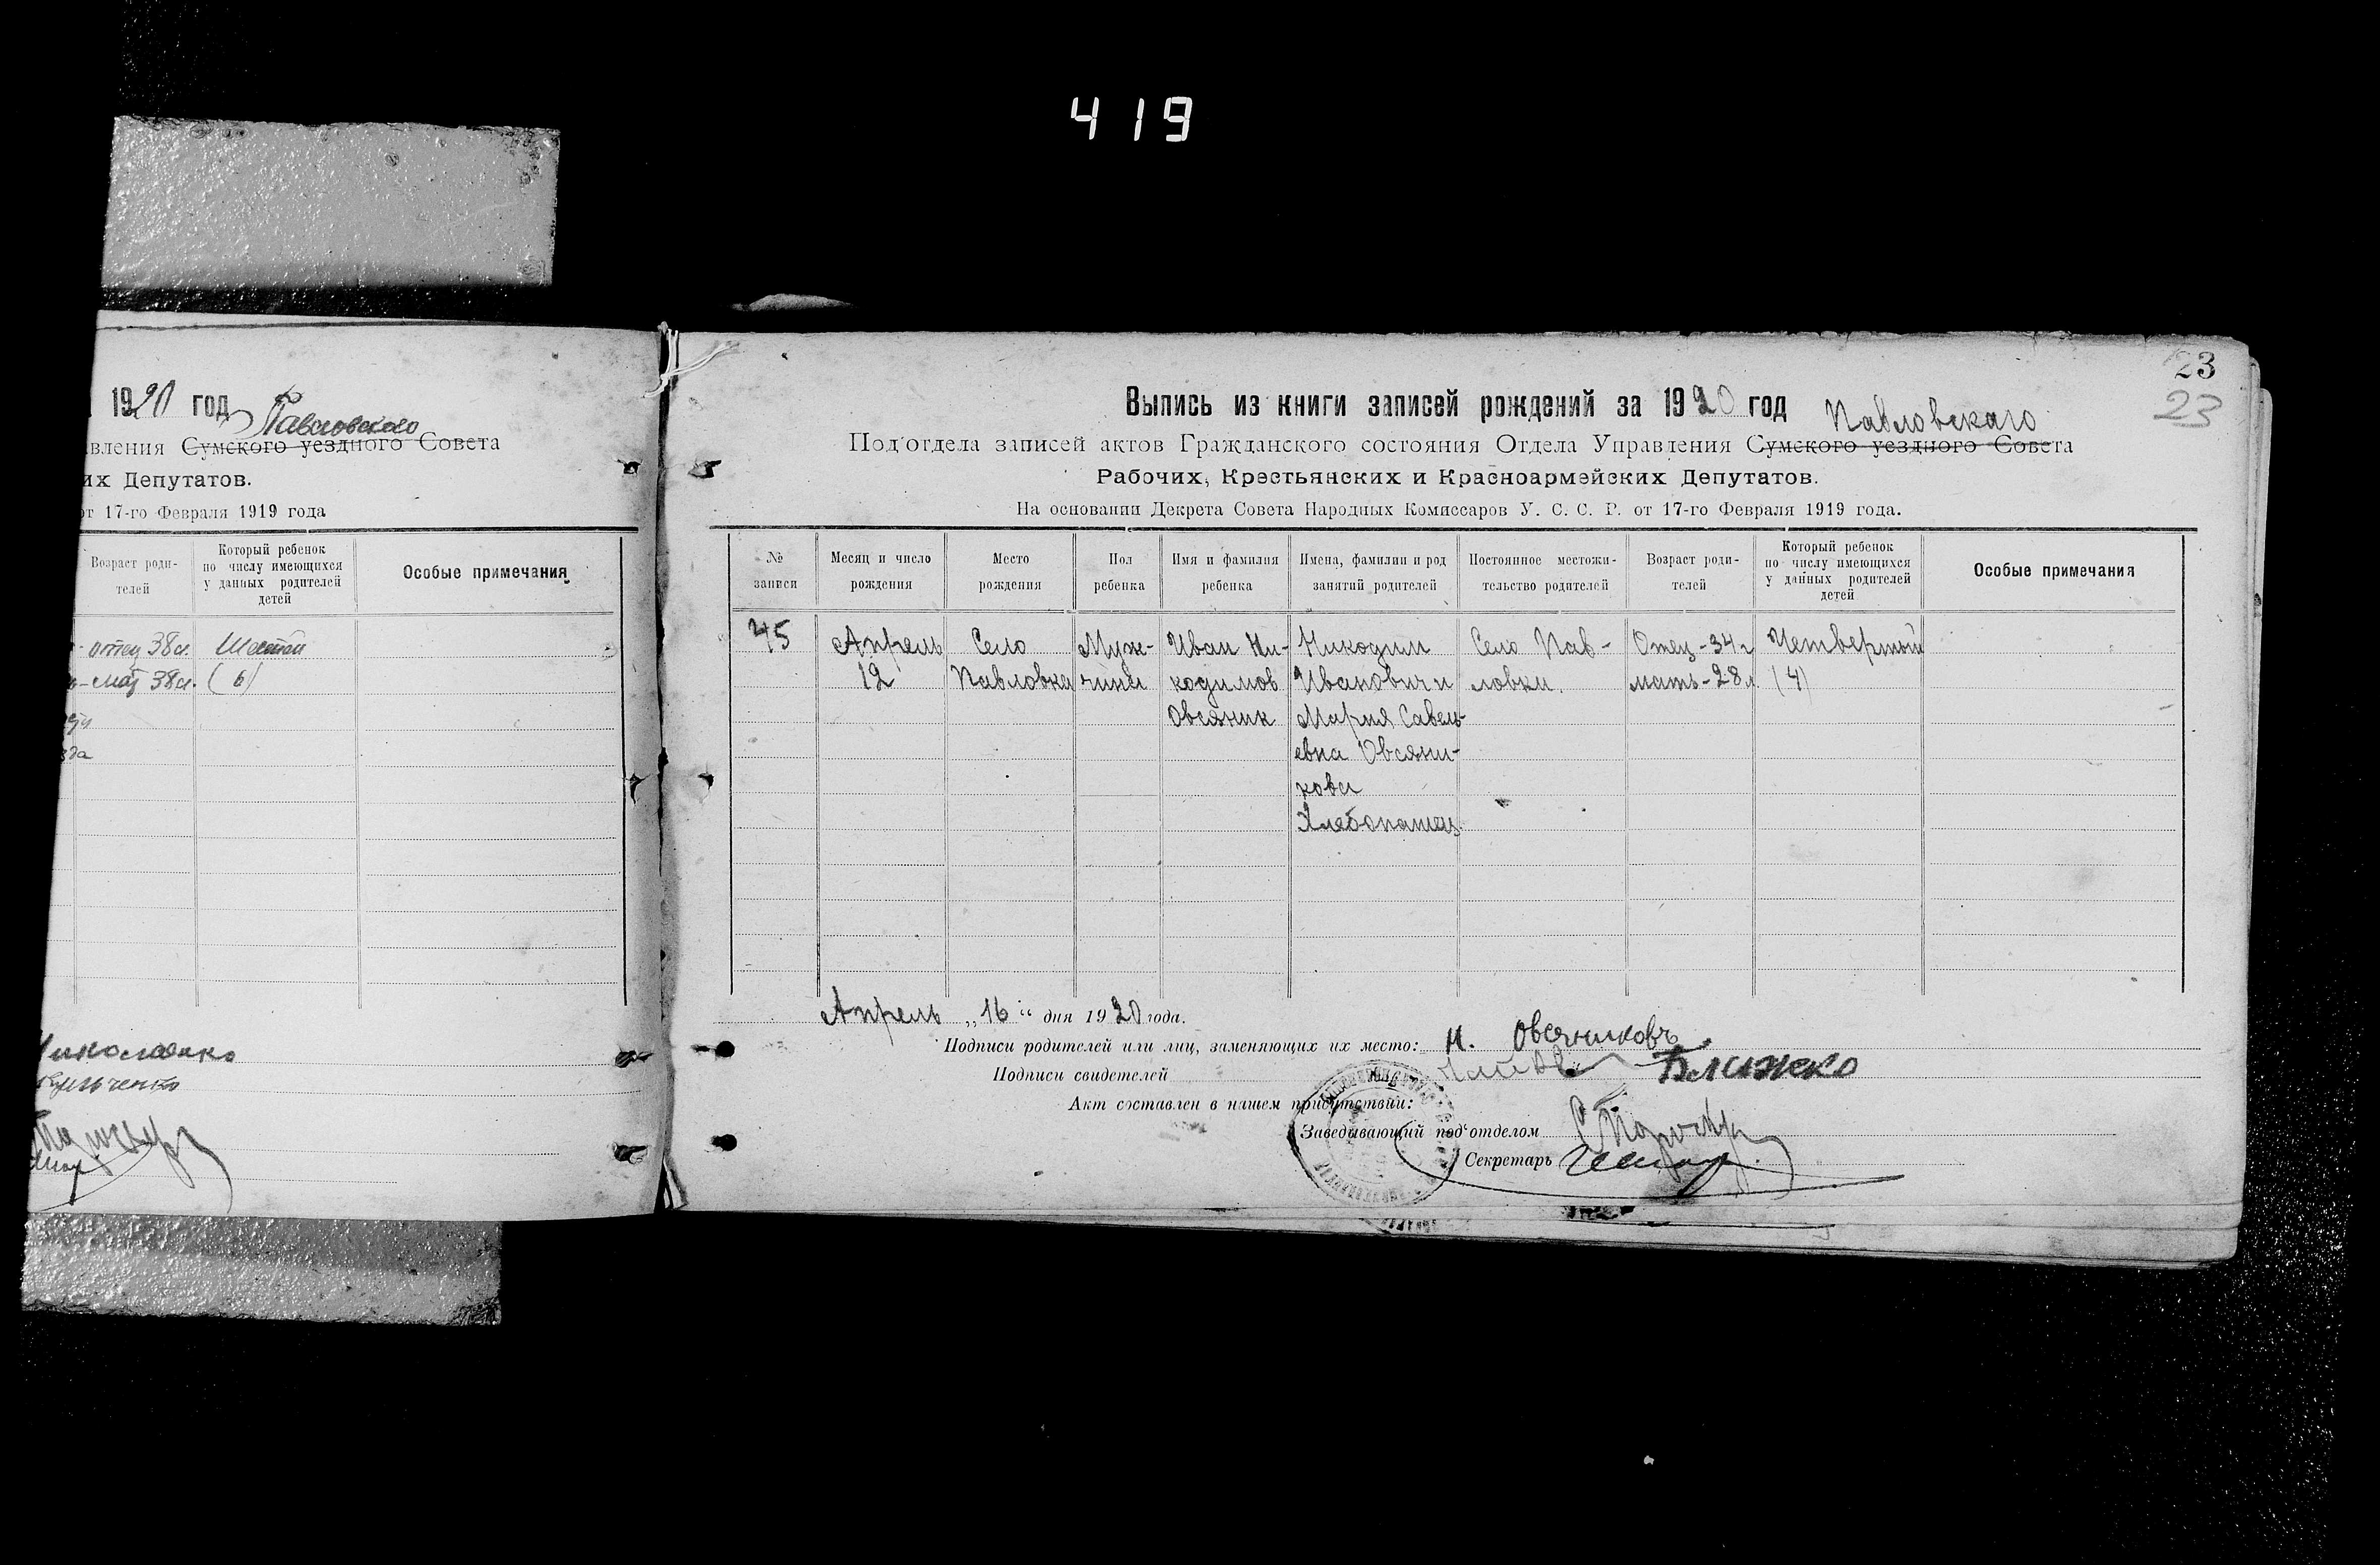 419
1920 год Павловского
вления Сумского уездного Совета
их Депутатов.
от 17-го Февраля 1919 года
Возраст роди-
телей
Который ребенок
по числу имеющихся
у данных родителей
детей
Особые примечания
отец 38 л. Шестой
мат 38 л. (6)
Николаенко
23
23
Выпись из книги записей рождений за 1920 год Павловскаго
Под'отдела записей актов Гражданского состояния Отдела Управления Сумского уездного Совета
Рабочих, Крестьянских и Красноармейских Депутатов.
На основании Декрета Совета Народных Комиссаров У. С. С. Р. от 17-го Февраля 1919 года.
№
записи
Месяц и число
рождения
Место
рождения
Пол
ребенка
Имя и фамилия
ребенка
Имена, фамилии и род
занятий родителей
Постоянное местожи-
тельство родителей
Возраст роди-
телей
Который ребенок
по числу имеющихся
у данных родителей
детей
Особые примечания
45
Апрель
12
Село
Павловка
Муж-
чина
Иван Ни-
кодимов
Овсяник
Никодим
Иванович и
Мария Савель-
евна Овсяни-
кова
Хлебопашец
Село Пав-
ловки.
Отец - 34 г
мать - 28 л.
Четвертый
(4)
Апрель „16“ дня 1920 года.
Подписи родителей или лиц, заменяющих их место: Н. Овсяниковъ
Подписи свидетелей Ближеко
Акт составлен в нашем присутствии:
Заведывающий под'отделом
Секретарь